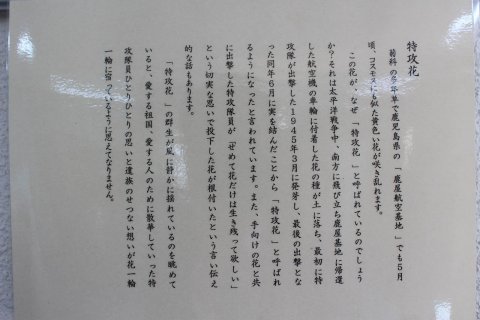 特攻花
菊科の多年草で鹿児島県の「鹿屋航空基地」でも5月
頃、コスモスにも似た黄色い花が咲き乱れます。
この花が、なぜ「特攻花」と呼ばれているのでしょう
か？それは太平洋戦争中、南方に飛び立ち鹿屋基地に帰還
した航空機の車輪に付着した花の種が土に落ち、最初に特
攻隊が出撃した1945年3月に発芽し、最後の出撃とな
った同年6月に実を結んだことから「特攻花」と呼ばれ
るようになったと言われています。また、手向けの花と共
に出撃した特攻隊員が、「せめて花だけは生き残って欲しい」
という切実な思いで投下した花が根付いたという言い伝え
的な話もあります。
「特攻花」の群生が風に静かに揺れているのを眺めて
いると、愛する祖国、愛する人のために散華していった特
攻隊員ひとりひとりの思いと遺族のせつない想いが花一輪
一輪に宿っているように思えてなりません。